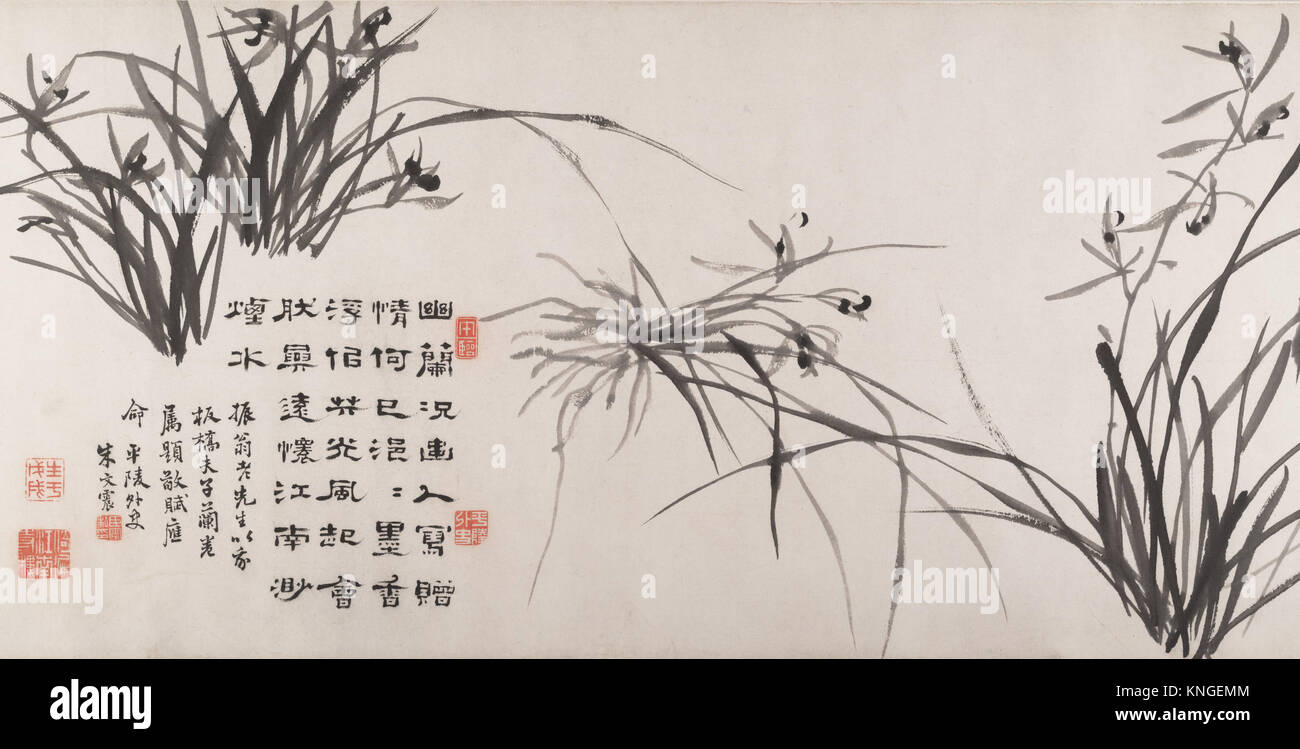 幽蘭況幽人寫贈
情何已浥〻墨香
浮佀共光風起會
肰興遠懷江南渺
煙水
振翁老先生以家
板橋夫子蘭卷
属題敬賦應
命 平陵外史
朱文震
平陵外史
生于戊戌
alamy
alamy
alamy
Image ID: KNGEMM
www.alamy.com